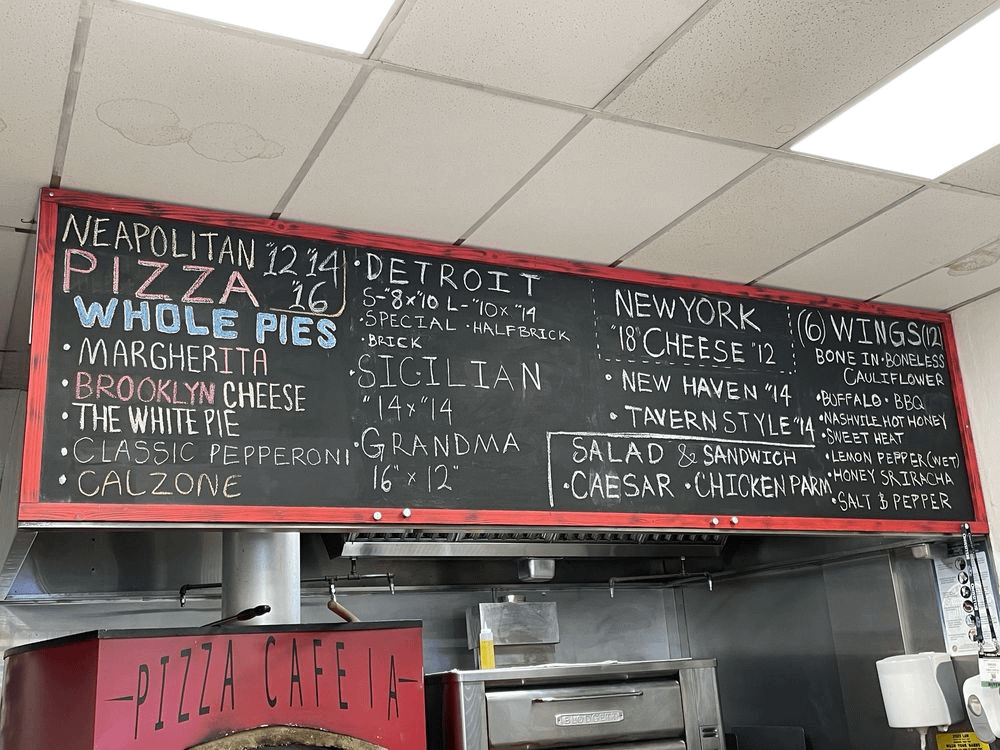 NEAPOLITAN "12 "14
PIZZA "16
WHOLE PIES
• MARGHERITA
• BROOKLYN CHEESE
• THE WHITE PIE
• CLASSIC PEPPERONI
• CALZONE
• DETROIT
S-"8x"10 L-"10x"14
• SPECIAL • HALFBRICK
• BRICK
• SICILIAN
"14x"14
• GRANDMA
16" x 12"
NEW YORK
"18 CHEESE "12
• NEW HAVEN "14
• TAVERN STYLE "14
SALAD & SANDWICH
• CAESAR • CHICKEN PARM
(6) WINGS (12)
BONE IN • BONELESS
CAULIFLOWER
• BUFFALO • BBQ
• NASHVILE HOT HONEY
• SWEET HEAT
• LEMON PEPPER (WET)
• HONEY SRIRACHA
• SALT & PEPPER
PIZZA CAFE IA
BLODGETT